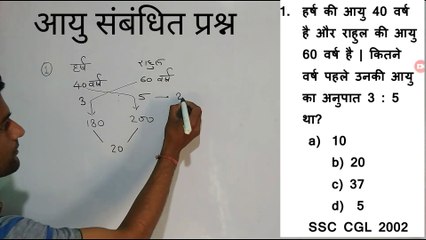 आयु संबंधित प्रश्न
① हर्ष राहुल
40 वर्ष 60 वर्ष
3 5 — 2
180 200
20
1. हर्ष की आयु 40 वर्ष
है और राहुल की आयु
60 वर्ष है | कितने
वर्ष पहले उनकी आयु
का अनुपात 3 : 5
था?
a) 10
b) 20
c) 37
d) 5
SSC CGL 2002